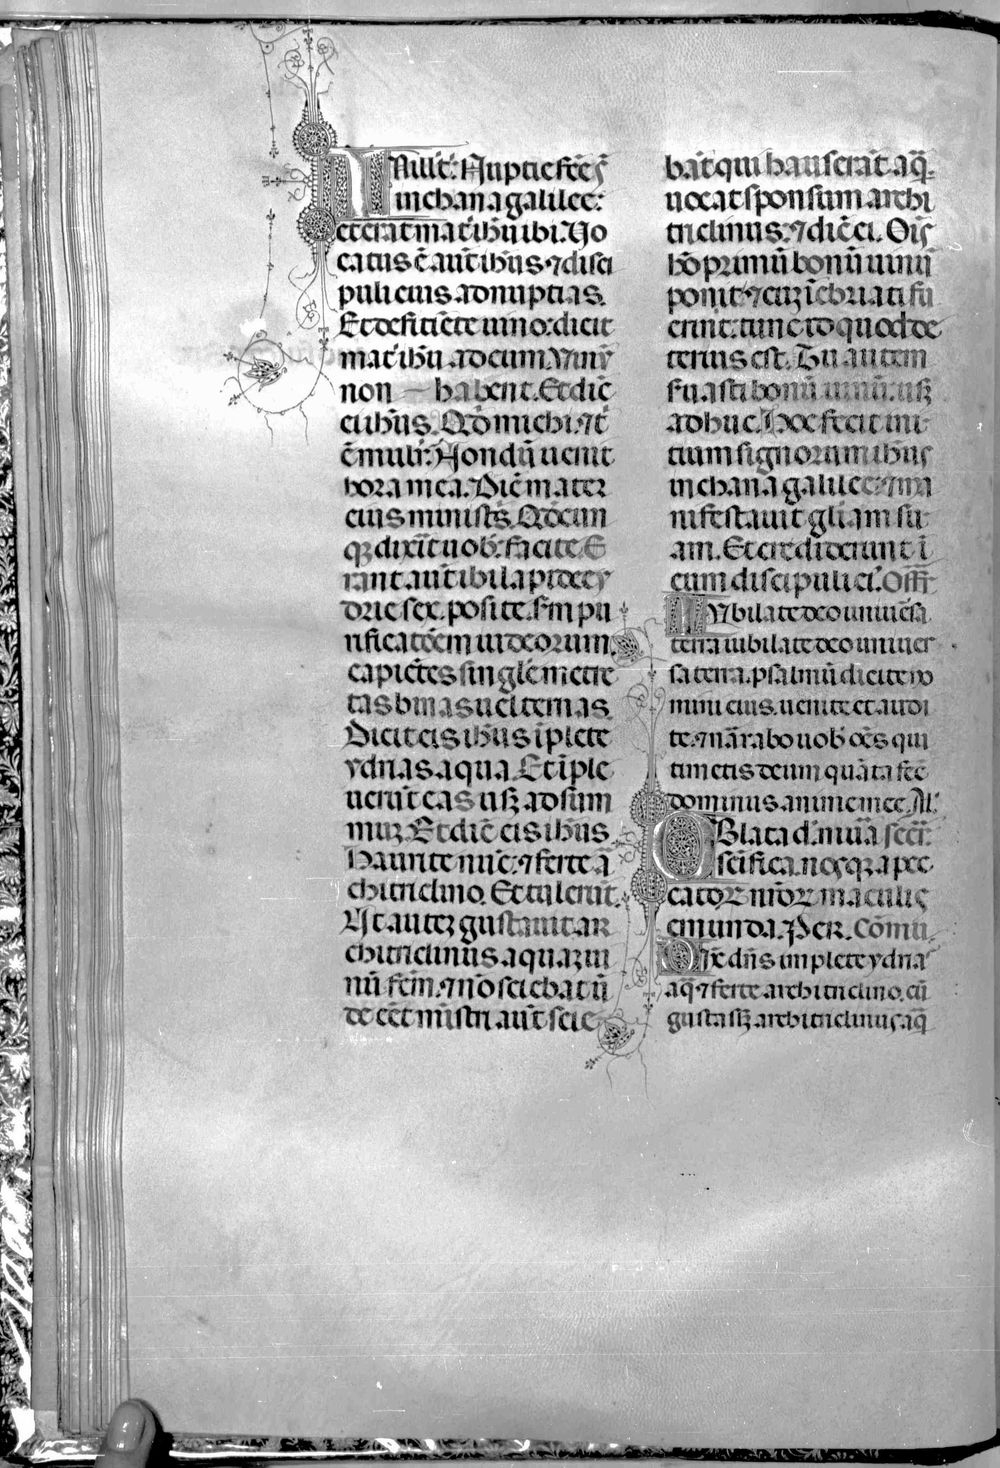 In illo tꝑr̄: Nuptie fc̄e st̄
in chana galilee:
et erat mat̄ ih̄u ibi. Uo
catus ē aut̄ ih̄us ⁊ disci
puli eius ad nuptias.
Et deficiēte uino: dicit
mat̄ ih̄u ad eum. Uinū
non habent. Et dic̄
ei ih̄us. Qd̄ michi ⁊ t̄
ē muli᷑: Nondū uenit
hora mea. Dic̄ mater
eius minists̄. Qd̄cun
qꝫ dixit̄ uob̄. facite. E
rant aut̄ ibi lapidee y
drie sex. posite. sm̄ pu
rificatōem iudeorum.
capiētes singl̄e metre
tas binas uel ternas.
Dicit eis ih̄us īplete
ydrias aqua. Et īple
uerūt eas usqꝫ ad sum
muꝫ. Et dic̄ eis ih̄us.
Haurite nūc. ⁊ ferte ar̄
chitriclino. Et tulerūt.
Ut auteꝫ gustauit ar
chitriclinus aquaꝫ ui
nū fc̄m. ⁊ nō sciebat ū
de eēt. mīstri aut̄ scie
bāt qui hauserāt aq̄ꝫ.
uocat sponsum archi
triclinus. ⁊ dic̄ ei. Oīs
hō primū bonū uinū
ponit. ⁊ cuꝫ īebriati fu
erint. tunc id quod de
terius est. Tu autem
seruasti bonū uinū. usqꝫ
adhuc. Hoc fecit ini
tium signorum ih̄us
in chana galilee. ⁊ ma
nifestauit gl̄iam su
am. Et crediderunt ī
eum discipuli ei᷑. Offr̄.
Iubilate deo uniuēsa
terra iubilate deo uniuer
sa terra. psalmū dicite no
mini eius. uenite et audi
te. ⁊ narrabo uob̄ oēs qui
timetis deum quāta fec̄
dominus anime mee. Al̄.
Oblata dn̄e mūa sc̄r̄:
sc̄ifica. nosqꝫ a pec
catoꝝ nr̄oꝝ maculis
emunda. Per. Cōmu.
Dic̄ dn̄s implete ydria᷑
aq̄ ⁊ ferte architriclino. cū
gustasꝫ architriclinus aq̄